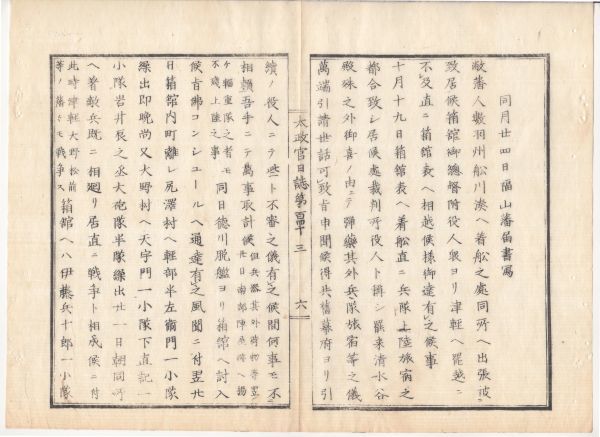 同月廿四日福山藩届書寫
敝藩人數羽州舩川湊へ着舩之處同所へ出張
致居候箱舘御總督附役人衆ヨリ津輕ヘ罷越ニ
不及直ニ箱舘表ヘ相越候樣御達有之候事
十月十九日箱舘表ヘ着舩直ニ兵隊上陸旅宿之
都合致シ居候處裁判所役人ト稱シ罷来清水谷
殿殊之外御喜ノ由ニテ彈藥其外兵隊旅宿等之儀
萬端引請世話可致旨申聞候得共舊幕府ヨリ引
太政官日誌第百四十三
六
續ノ役人ニテ些ト不審之儀有之候間何事モ不
相頼吾手ニテ萬事取計候
同日德川脱艦ヨリ箱舘ヘ討入
候旨佛コンシュールヘ通達有之風聞ニ付翌廿
日箱舘内町離レ尻澤村ヘ輕部半左衞門一小隊
繰出即晩尚又大野村ヘ天宇門一小隊下直記一
小隊岩井辰之丞大砲隊半隊繰出廿一日朝同所
ヘ着敵兵既ニ相廻リ居直ニ戰爭ト相成候ニ付
此時津輕大野松前
等ノ藩トモ戰爭ス
箱舘ヘハ伊藤兵十郎一小隊